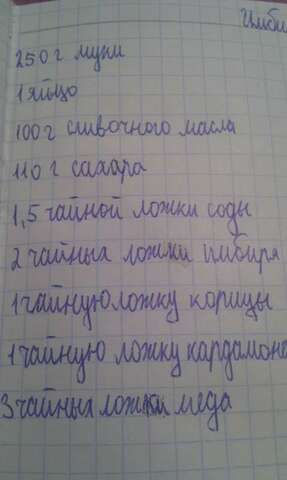 Имби
250 г муки
1 яйцо
100 г сливочного масла
110 г сахара
1,5 чайной ложки соды
2 чайных ложки имбиря
1 чайную ложку корицы
1 чайную ложку кардамона
3 чайных ложки меда